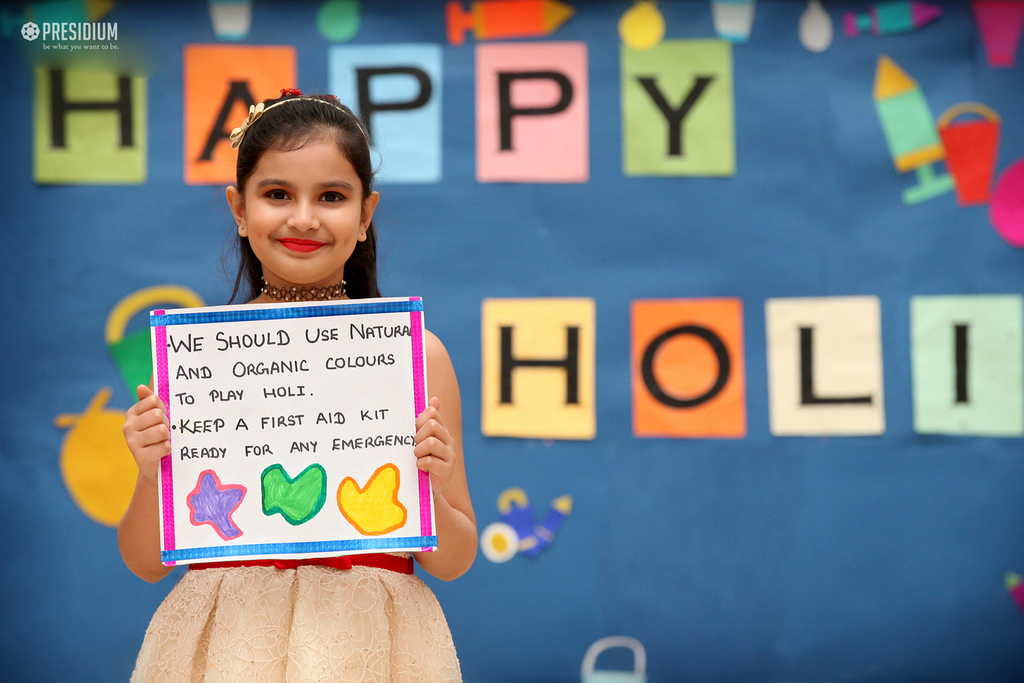 PRESIDIUM
be what you want to be.
HAPPY
HOLI
• WE SHOULD USE NATURA
AND ORGANIC COLOURS
TO PLAY HOLI.
• KEEP A FIRST AID KIT
READY FOR ANY EMERGENCY